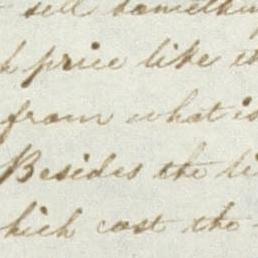 sell somethin
price like
from what is
Besides the
hich cost the